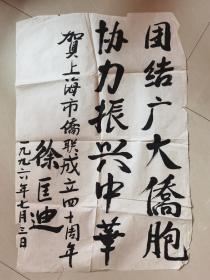 团结广大僑胞
协力振兴中華
賀上海市僑联成立四十周年
徐匡迪
一九九六年七月三日